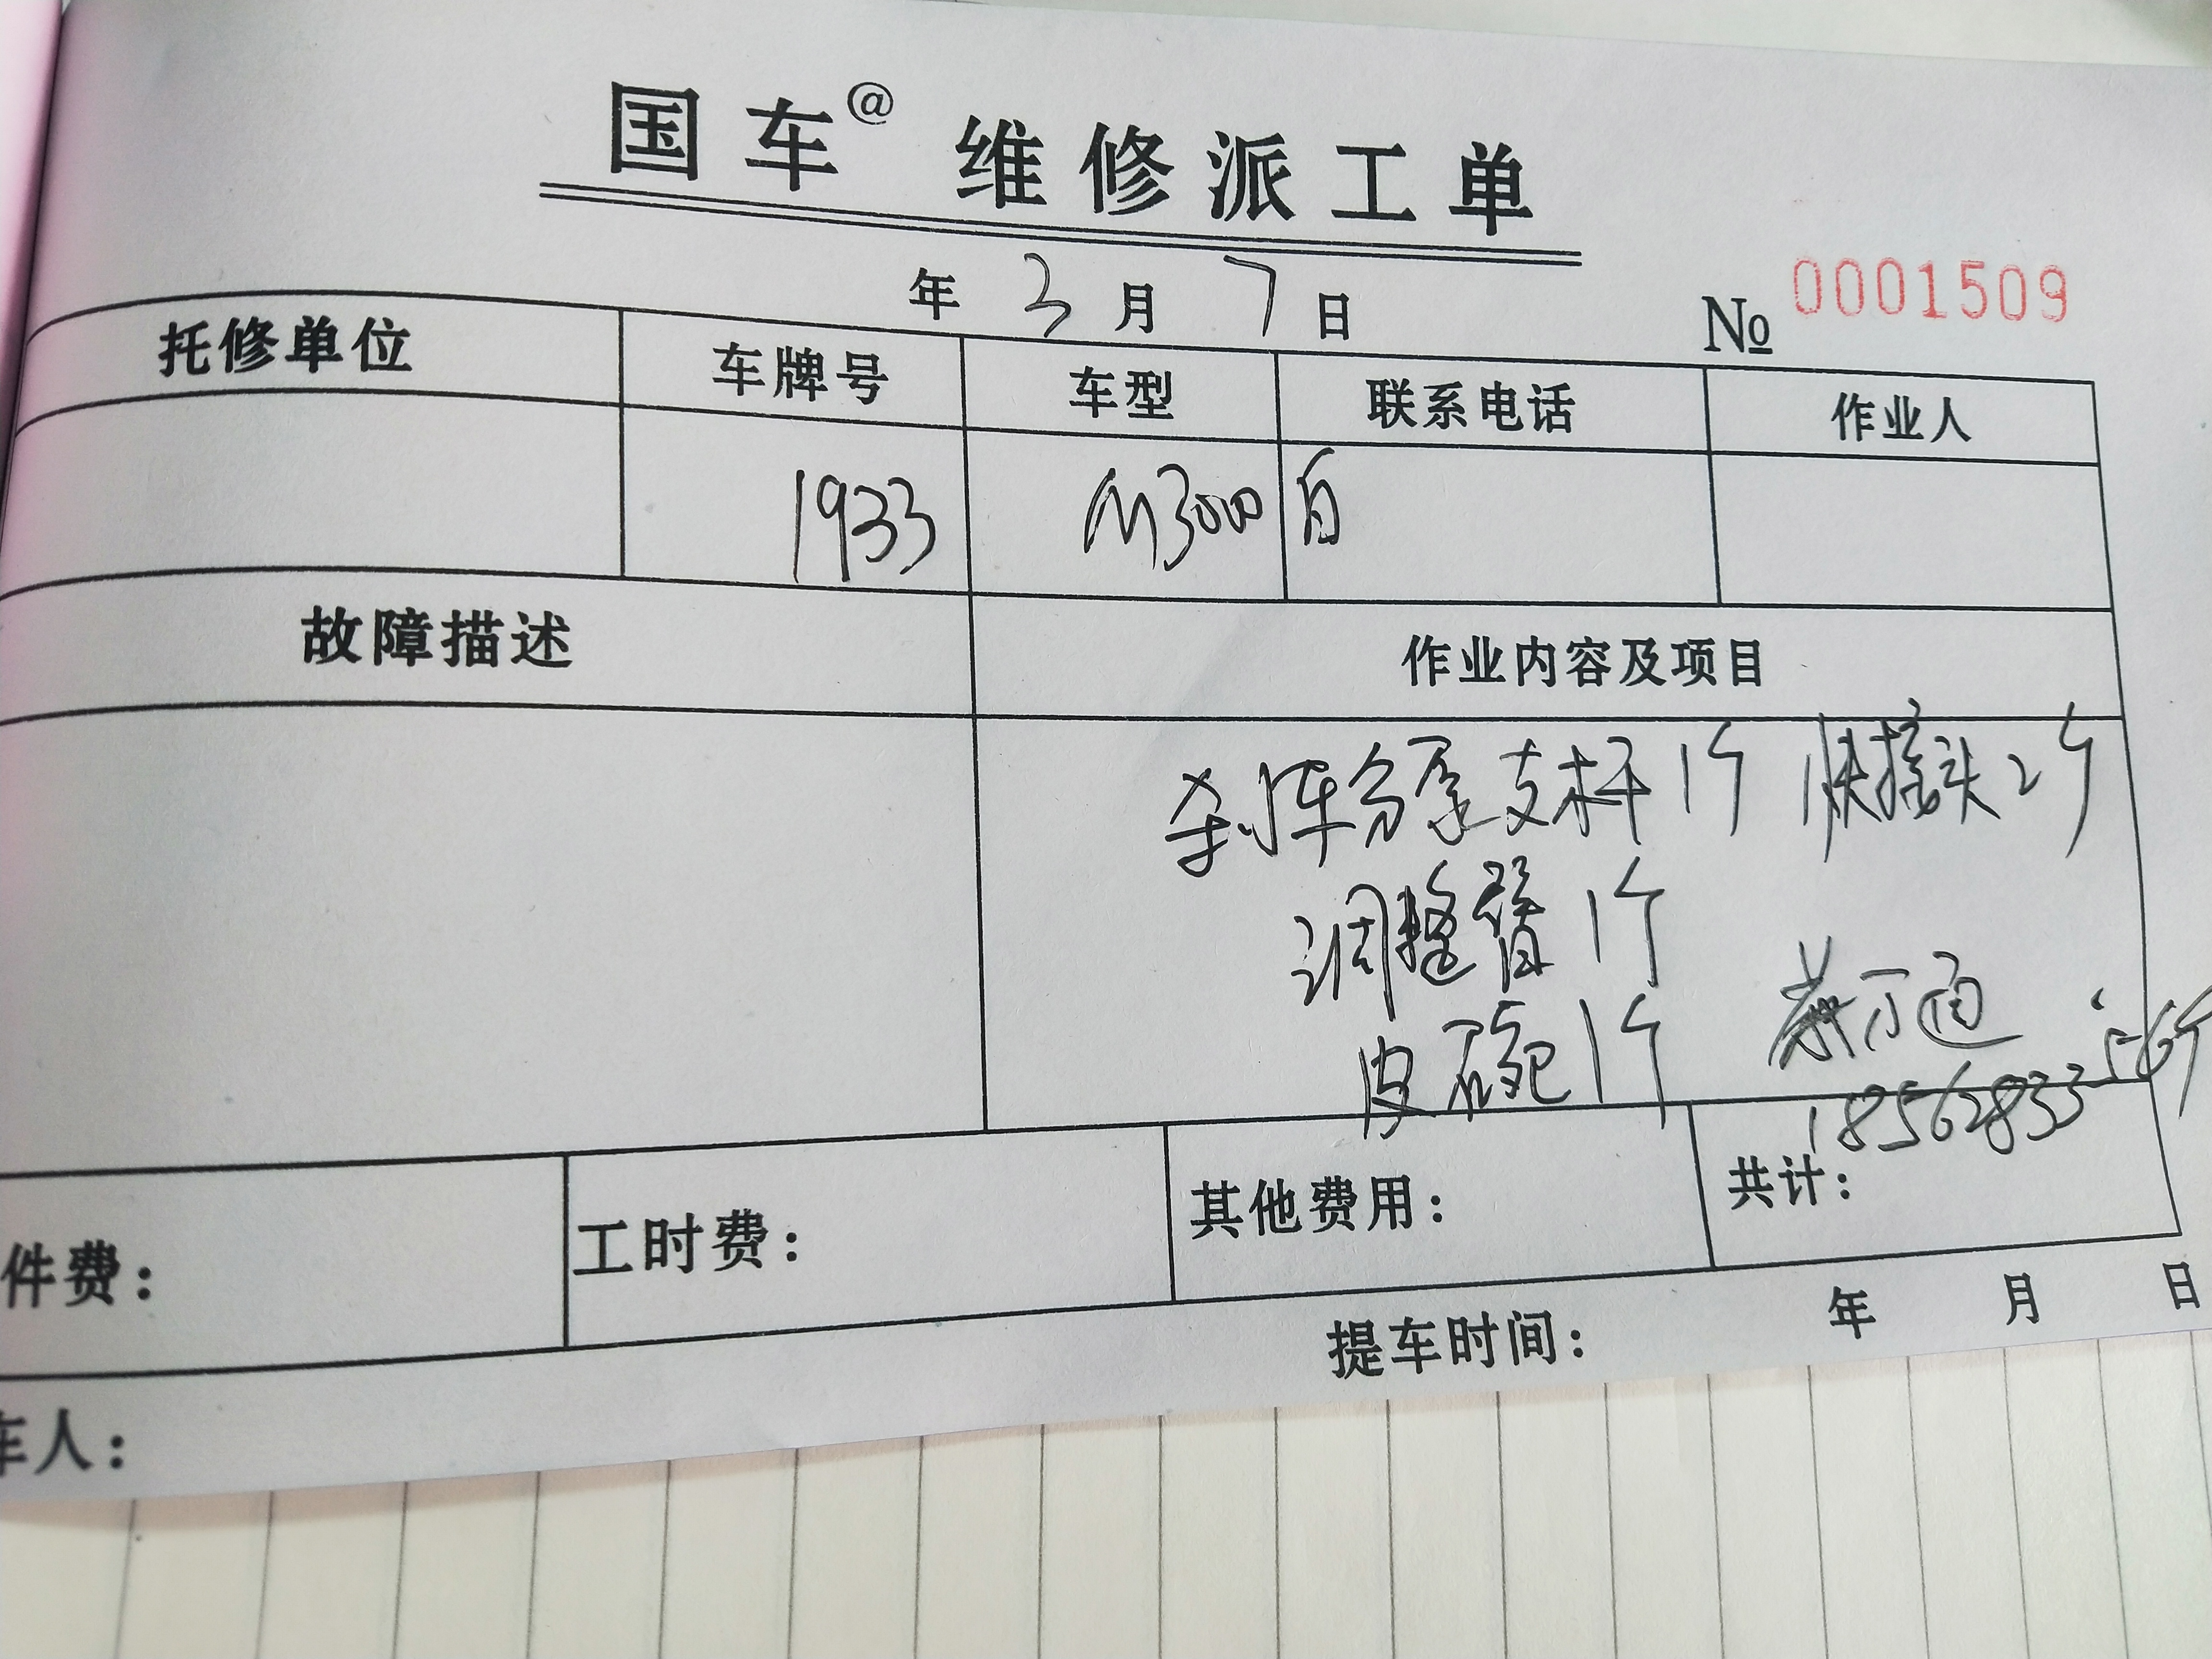 国车@ 维修派工单
年 3 月 7 日 № 0001509
托修单位 车牌号 车型 联系电话 作业人
1933 M3000 白
故障描述 作业内容及项目
刹车分泵支杆1个 快接头2个
调整臂1个
皮碗1个
18562833
件费： 工时费： 其他费用： 共计：
提车时间： 年 月 日
车人：